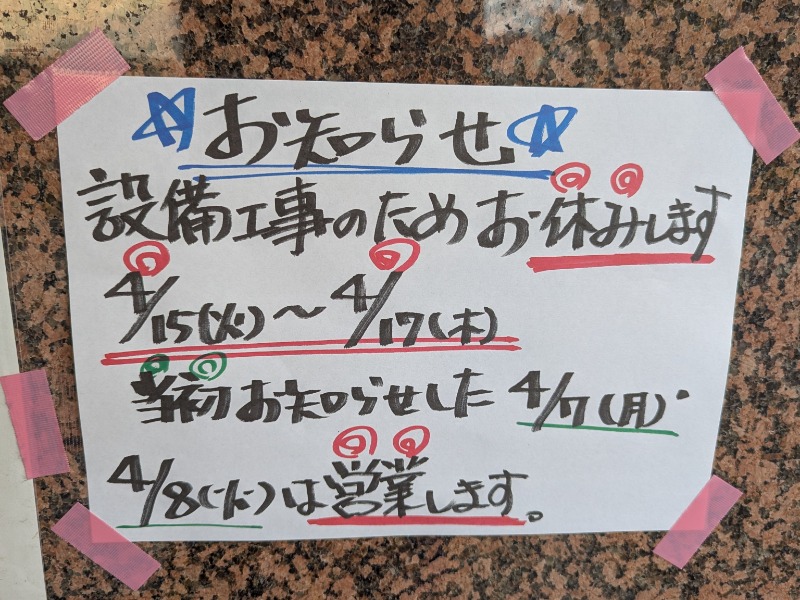 お知らせ
設備工事のためお休みします
4/15(火)～4/17(木)
当初お知らせした4/7(月)・
4/8(火)は営業します。